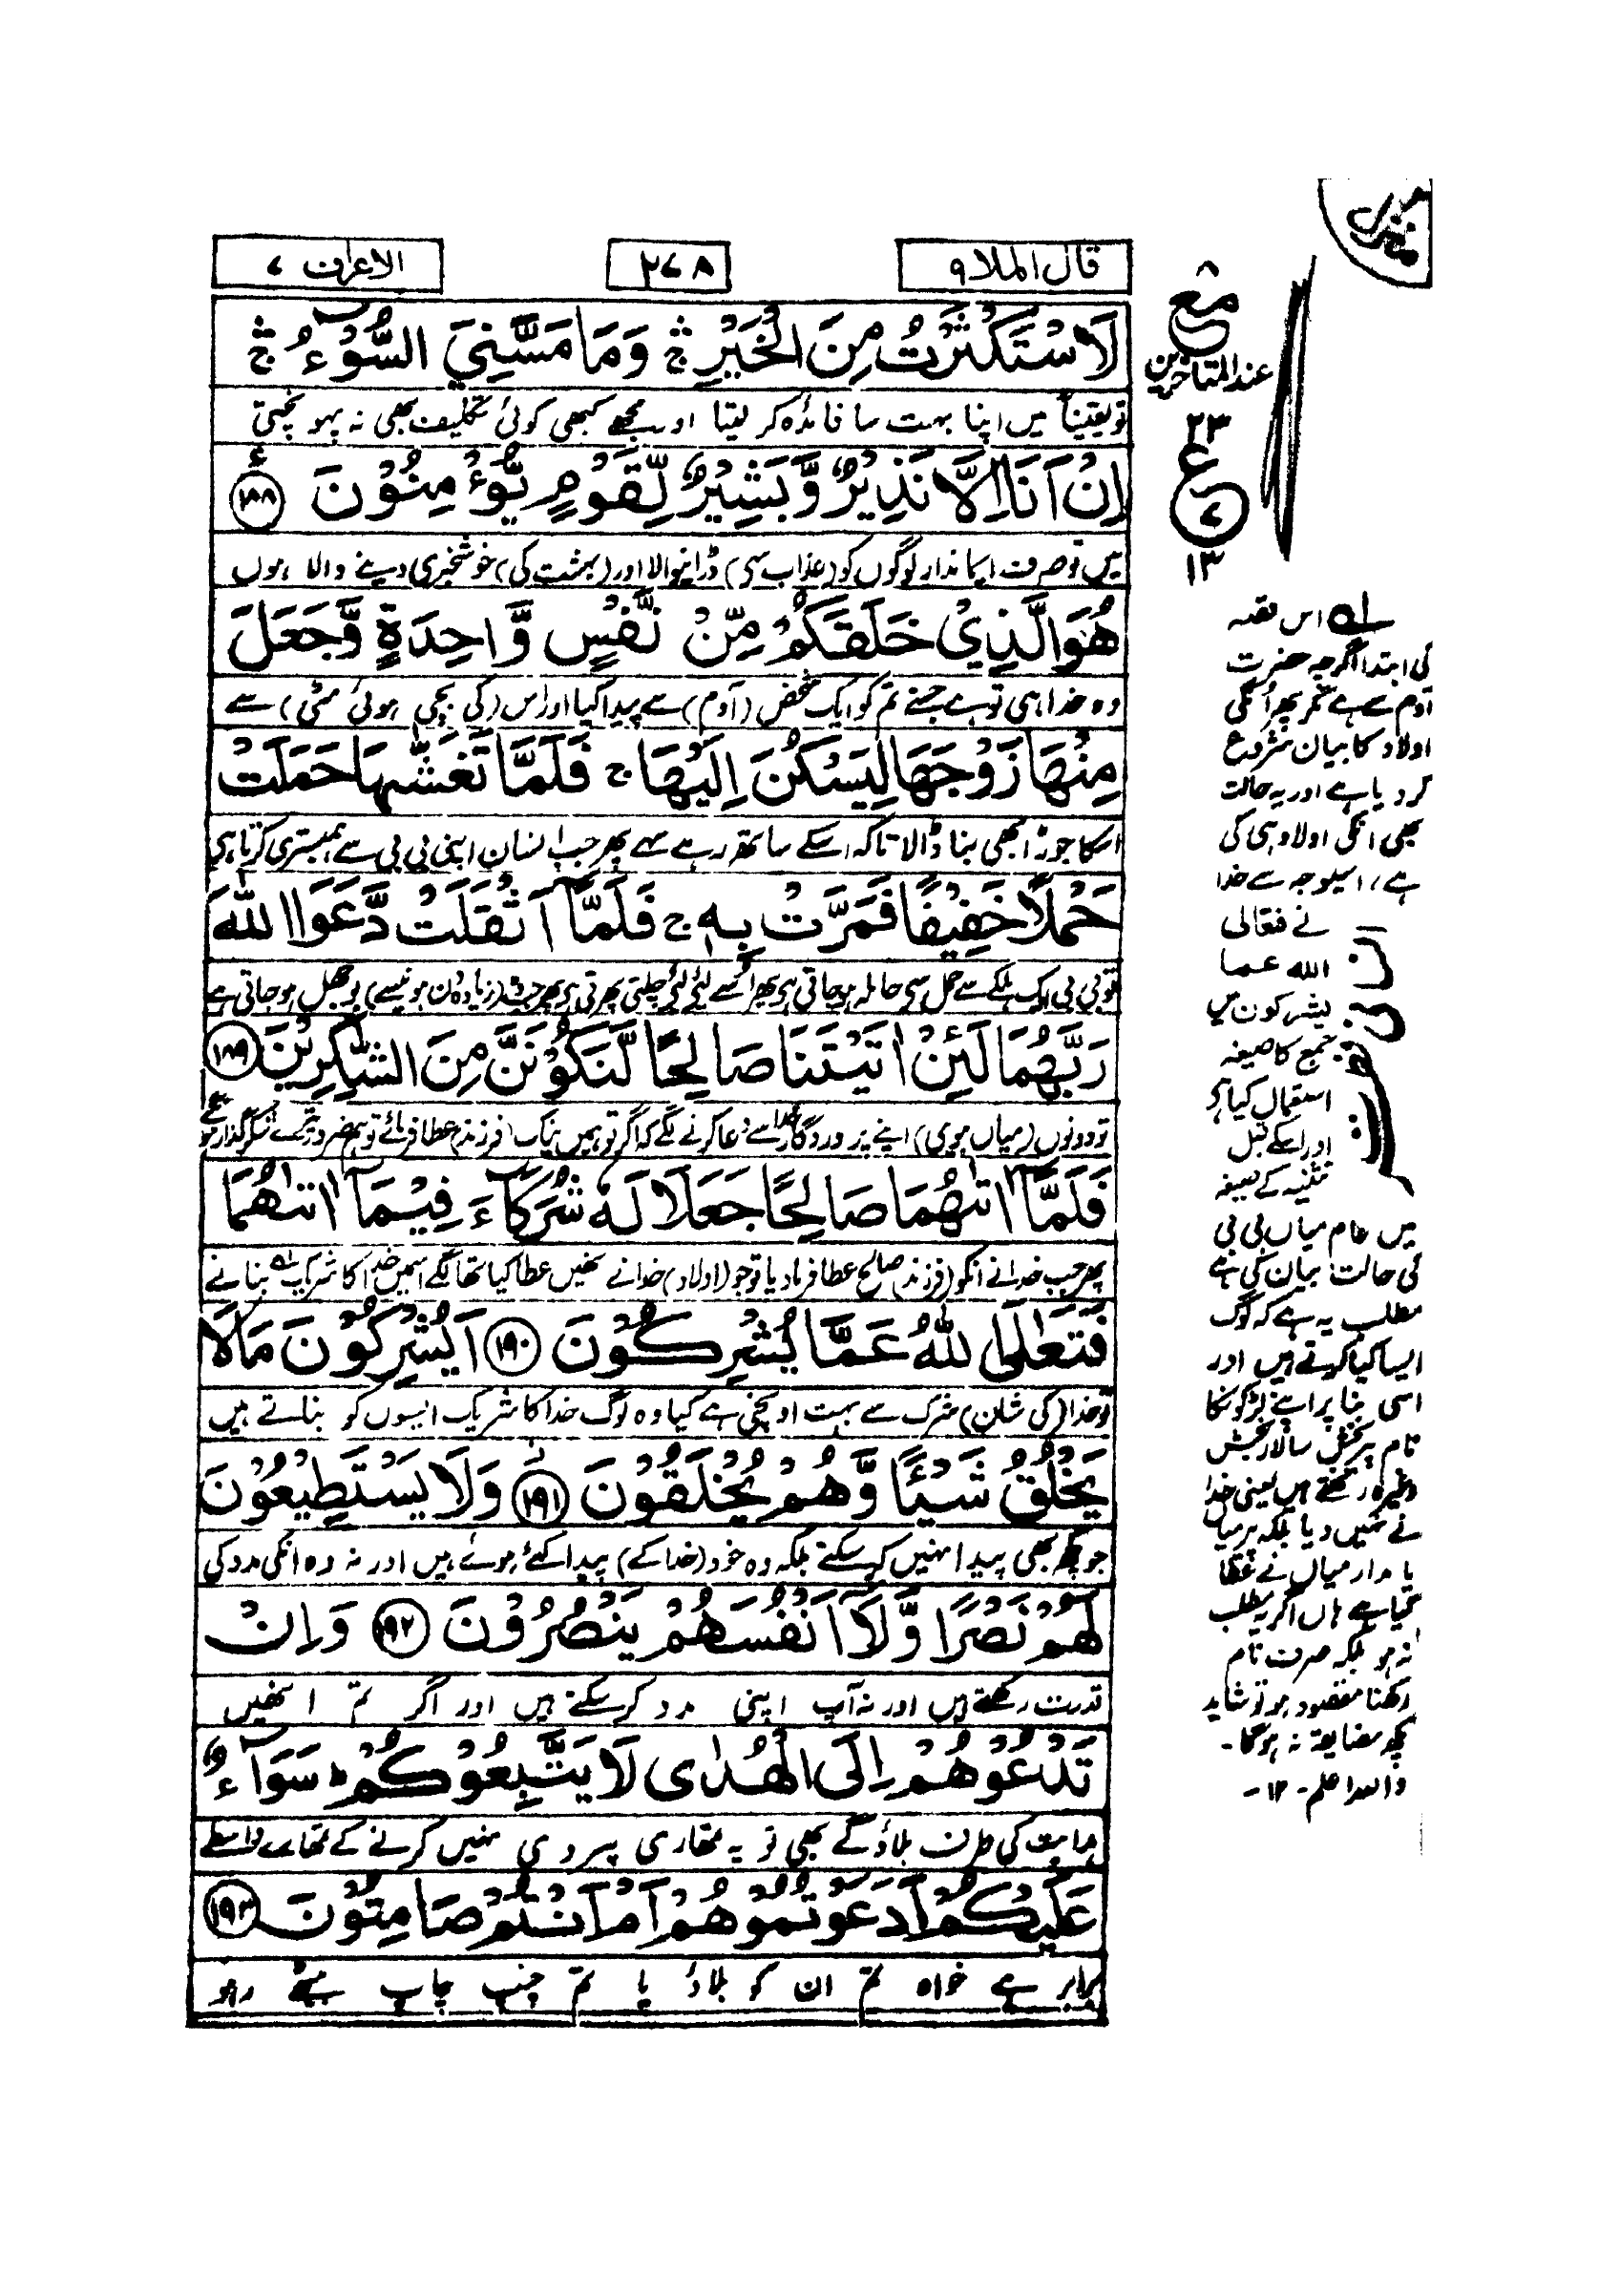 قال الملا ۹
۲۷۸
الاعراف ۷
لَاسْتَكْثَرْتُ مِنَ الْخَيْرِ ۛ وَمَا مَسَّنِيَ السُّوْٓءُ ۛ
تو یقیناً میں اپنا بہت سا فائدہ کر لیتا اور مجھے کبھی کوئی تکلیف بھی نہ پہونچتی
اِنْ اَنَا اِلَّا نَذِيْرٌ وَّبَشِيْرٌ لِّقَوْمٍ يُّوْءْمِنُوْنَ ۱۸۸
میں تو صرف ایماندار لوگوں کو (عذاب سے) ڈرانیوالا اور (بہشت کی) خوشخبری دینے والا ہوں
هُوَ الَّذِيْ خَلَقَكُمْ مِّنْ نَّفْسٍ وَّاحِدَةٍ وَّجَعَلَ
وہ خدا ہی تو ہے جسنے تم کو ایک شخص (آدم) سے پیدا کیا اور اس (کی بچی ہوئی مٹی) سے
مِنْهَا زَوْجَهَا لِيَسْكُنَ اِلَيْهَا ج فَلَمَّا تَغَشّٰىهَا حَمَلَتْ
اسکا جوڑا بھی بنا ڈالا تاکہ اسکے ساتھ رہے سہے پھر جب انسان اپنی بی بی سے ہمبستری کرتا ہے
حَمْلًا خَفِيْفًا فَمَرَّتْ بِهٖ ج فَلَمَّآ اَثْقَلَتْ دَّعَوَا اللّٰهَ
تو بی بی ایک ہلکے سے حمل سے حاملہ ہو جاتی ہے پھر اسے لئے لئے چلتی پھرتی ہے پھر جب (زیادہ دن ہونیسے) بوجھل ہو جاتی ہے
رَبَّهُمَا لَئِنْ اٰتَيْتَنَا صَالِحًا لَّنَكُوْنَنَّ مِنَ الشّٰكِرِيْنَ ۱۸۹
تو دونوں (میاں بیوی) اپنے پروردگار خدا سے دعا کرنے لگے کہ اگر تو ہمیں نیک فرزند عطا فرمائے تو ہم ضرور تیرے شکرگذار ہونگے
فَلَمَّآ اٰتٰىهُمَا صَالِحًا جَعَلَا لَهٗ شُرَكَآءَ فِيْمَآ اٰتٰىهُمَا
پھر جب خدا نے انکو (فرزند) صالح عطا فرما دیا تو جو (اولاد) خدا نے انھیں عطا کیا تھا لگے اسمیں خدا کا شریک بنانے
فَتَعٰلَى اللّٰهُ عَمَّا يُشْرِكُوْنَ ۱۹۰ اَيُشْرِكُوْنَ مَا لَا
تو خدا (کی شان) شرک سے بہت اونچی ہے کیا وہ لوگ خدا کا شریک ایسوں کو بناتے ہیں
يَخْلُقُ شَيْئًا وَّهُمْ يُخْلَقُوْنَ ۱۹۱ وَلَا يَسْتَطِيْعُوْنَ
جو کچھ بھی پیدا نہیں کر سکتے بلکہ وہ خود (خدا کے) پیدا کئے ہوئے ہیں اور نہ وہ انکی مدد کی
لَهُمْ نَصْرًا وَّلَآ اَنْفُسَهُمْ يَنْصُرُوْنَ ۱۹۲ وَاِنْ
قدرت رکھتے ہیں اور نہ آپ اپنی مدد کر سکتے ہیں اور اگر تم انھیں
تَدْعُوْهُمْ اِلَى الْهُدٰى لَا يَتَّبِعُوْكُمْ ط سَوَآءٌ
ہدایت کی طرف بلاؤ گے بھی تو یہ تمھاری پیروی نہیں کرنے کے تمھارے واسطے
عَلَيْكُمْ اَدَعَوْتُمُوْهُمْ اَمْ اَنْتُمْ صَامِتُوْنَ ۱۹۳
برابر ہے خواہ تم ان کو بلاؤ یا تم چپ چاپ بیٹھے رہو
منزل ۲
۸
مع
عند المتاخرین
۲۳
ع
۷
۱۳
لہ اس قصہ
کی ابتدا اگرچہ حضرت
آدم سے ہے مگر پھر انکی
اولاد کا بیان شروع
کر دیا ہے اور یہ حالت
بھی انکی اولاد ہی کی
ہے، اسیوجہ سے خدا
نے فتعالی
اللہ عما
یشرکون میں
جمع کا صیغہ
استعمال کیا ہے
اور اسکے قبل
تثنیہ کے صیغہ
میں عام میاں بی بی
کی حالت بیان کی ہے
مطلب یہ ہے کہ لوگ
ایسا کیا کرتے ہیں اور
اسی بنا پر اپنے لڑکونکا
نام پیر بخش سالار بخش
وغیرہ رکھتے ہیں یعنی خدا
نے نہیں دیا بلکہ پر میاں
یا مدار میاں نے عطا
کیا ہے ہاں اگر یہ مطلب
نہ ہو بلکہ صرف نام
رکھنا مقصود ہو تو شاید
کچھ مضایقہ نہ ہوگا۔
واللہ اعلم۔ ۱۲۔